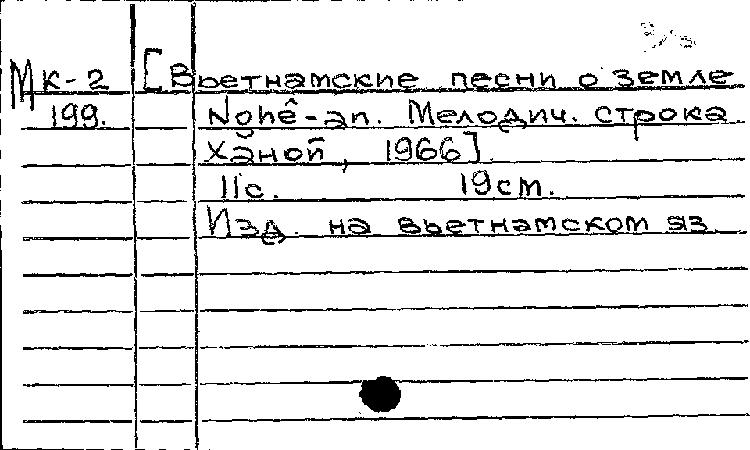 Мк-2 [Вьетнамские песни о земле
199. Nohê-an. Мелодич. строка
Ханой, 1966]
11с. 19см.
Изд. на вьетнамском яз